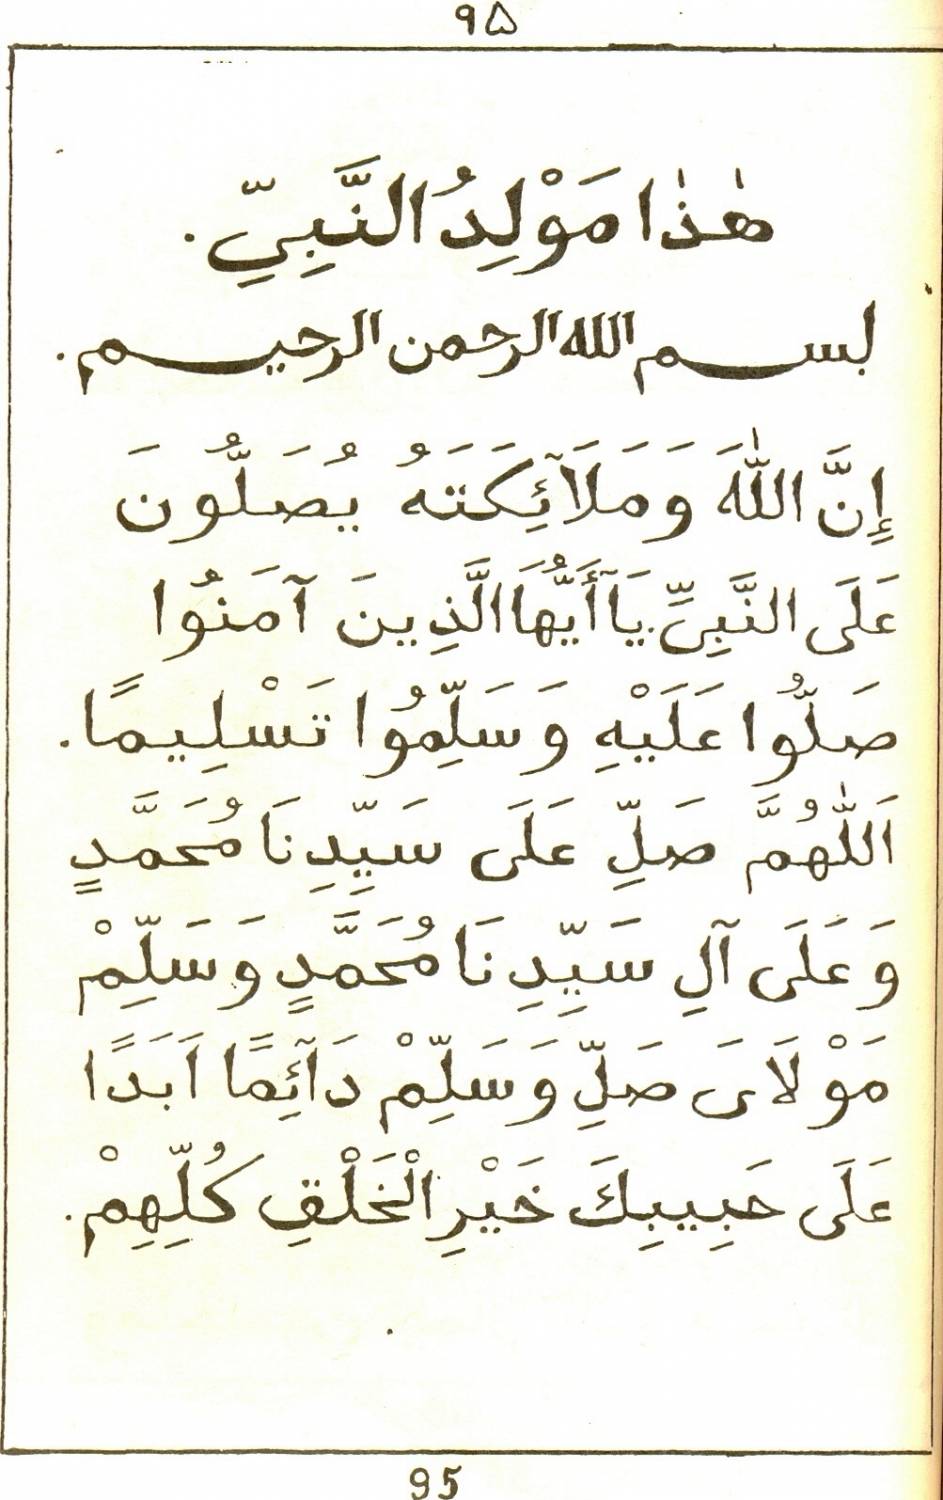 ٩۵
هٰذٰا مَوْلِدُ النَّبِيِّ.
بسم الله الرحمن الرحيم.
إِنَّ اللّٰهَ وَمَلَآئِكَتَهُ يُصَلُّونَ
عَلَى النَّبِيِّ. يَآأَيُّهَا الَّذِينَ آمَنُوا
صَلُّوا عَلَيْهِ وَسَلِّمُوا تَسْلِيمًا.
اَللّٰهُمَّ صَلِّ عَلَى سَيِّدِنَا مُحَمَّدٍ
وَعَلَى آلِ سَيِّدِنَا مُحَمَّدٍ وَسَلِّمْ
مَوْلَاىَ صَلِّ وَسَلِّمْ دَآئِمًا اَبَدًا
عَلَى حَبِيبِكَ خَيْرِ الْخَلْقِ كُلِّهِمْ.
95